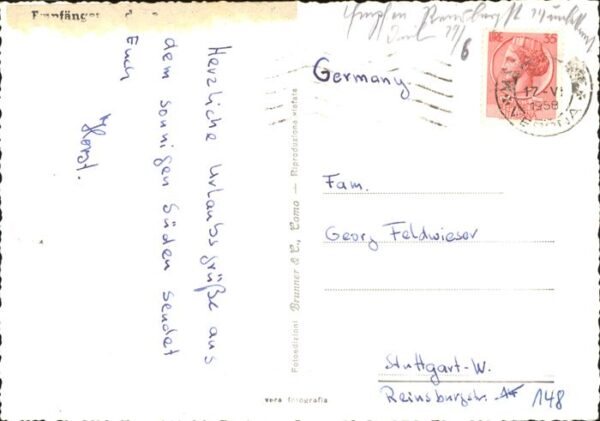 Empfänger
Herzliche Urlaubsgrüße aus
dem sonnigen Süden sendet
Euch
Horst.
Germany
LIRE 35
17-VI
1958
VERONA
Fam.
Georg Feldwieser
Stuttgart-W.
Reinsburgstr. 148
Fotoedizioni Brunner & C., Como — Riproduzione vietata
vera fotografia